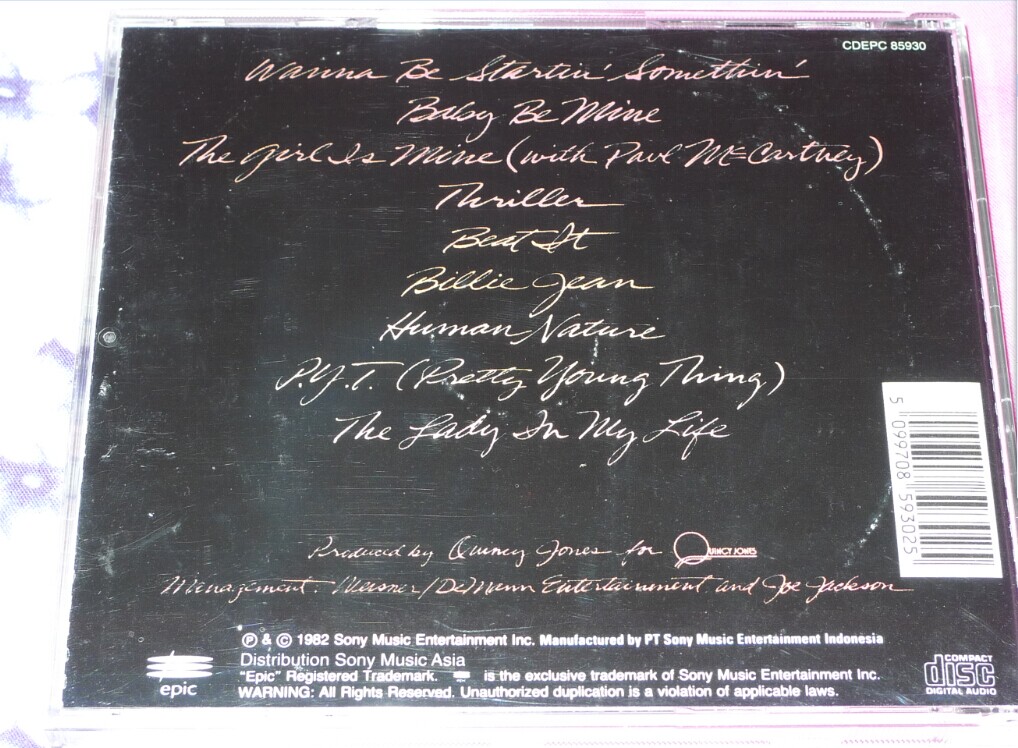 CDEPC 85930
Wanna Be Startin' Somethin'
Baby Be Mine
The Girl Is Mine (with Paul McCartney)
Thriller
Beat It
Billie Jean
Human Nature
P.Y.T. (Pretty Young Thing)
The Lady In My Life
5 099708 593025
Produced by Quincy Jones for QUINCY JONES
Management: Weisner/DeMann Entertainment and Joe Jackson
℗ & © 1982 Sony Music Entertainment Inc. Manufactured by PT Sony Music Entertainment Indonesia
Distribution Sony Music Asia
"Epic" Registered Trademark. is the exclusive trademark of Sony Music Entertainment Inc.
WARNING: All Rights Reserved. Unauthorized duplication is a violation of applicable laws.
epic
COMPACT
disc
DIGITAL AUDIO